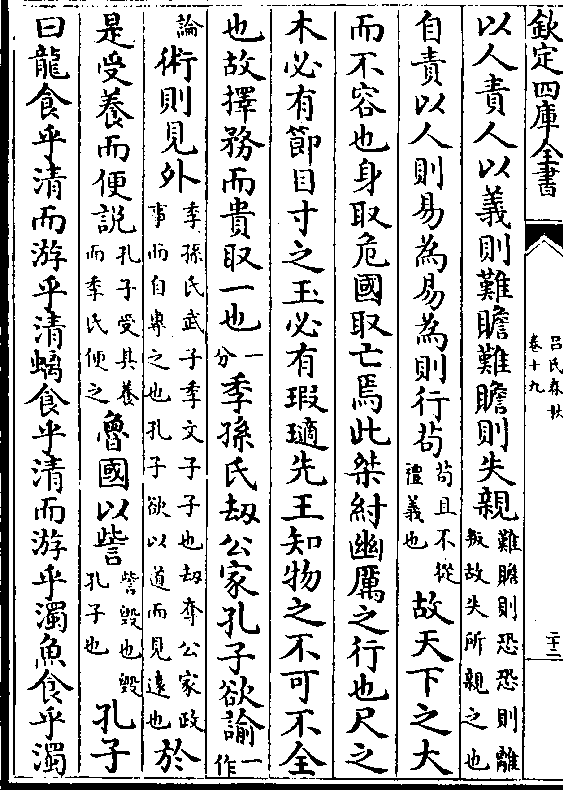 欽定四庫全書
呂氏春秋
卷十九
二十二
以人責人以義則難瞻難瞻則失親難瞻則恐恐則離叛故失所親之也
自責以人則易為易為則行茍茍且不從禮義也故天下之大
而不容也身取危國取亡焉此桀紂幽厲之行也尺之
木必有節目寸之玉必有瑕瓋先王知物之不可不全
也故擇務而貴取一也一分季孫氏刼公家孔子欲諭一作
論術則見外季孫氏武子季文子子也刼奪公家政事而自專之也孔子欲以道而見遠也於
是受養而便說孔子受其養而季氏便之魯國以訾訾毀也毀孔子也孔子
曰龍食乎清而游乎清螭食乎清而游乎濁魚食乎濁